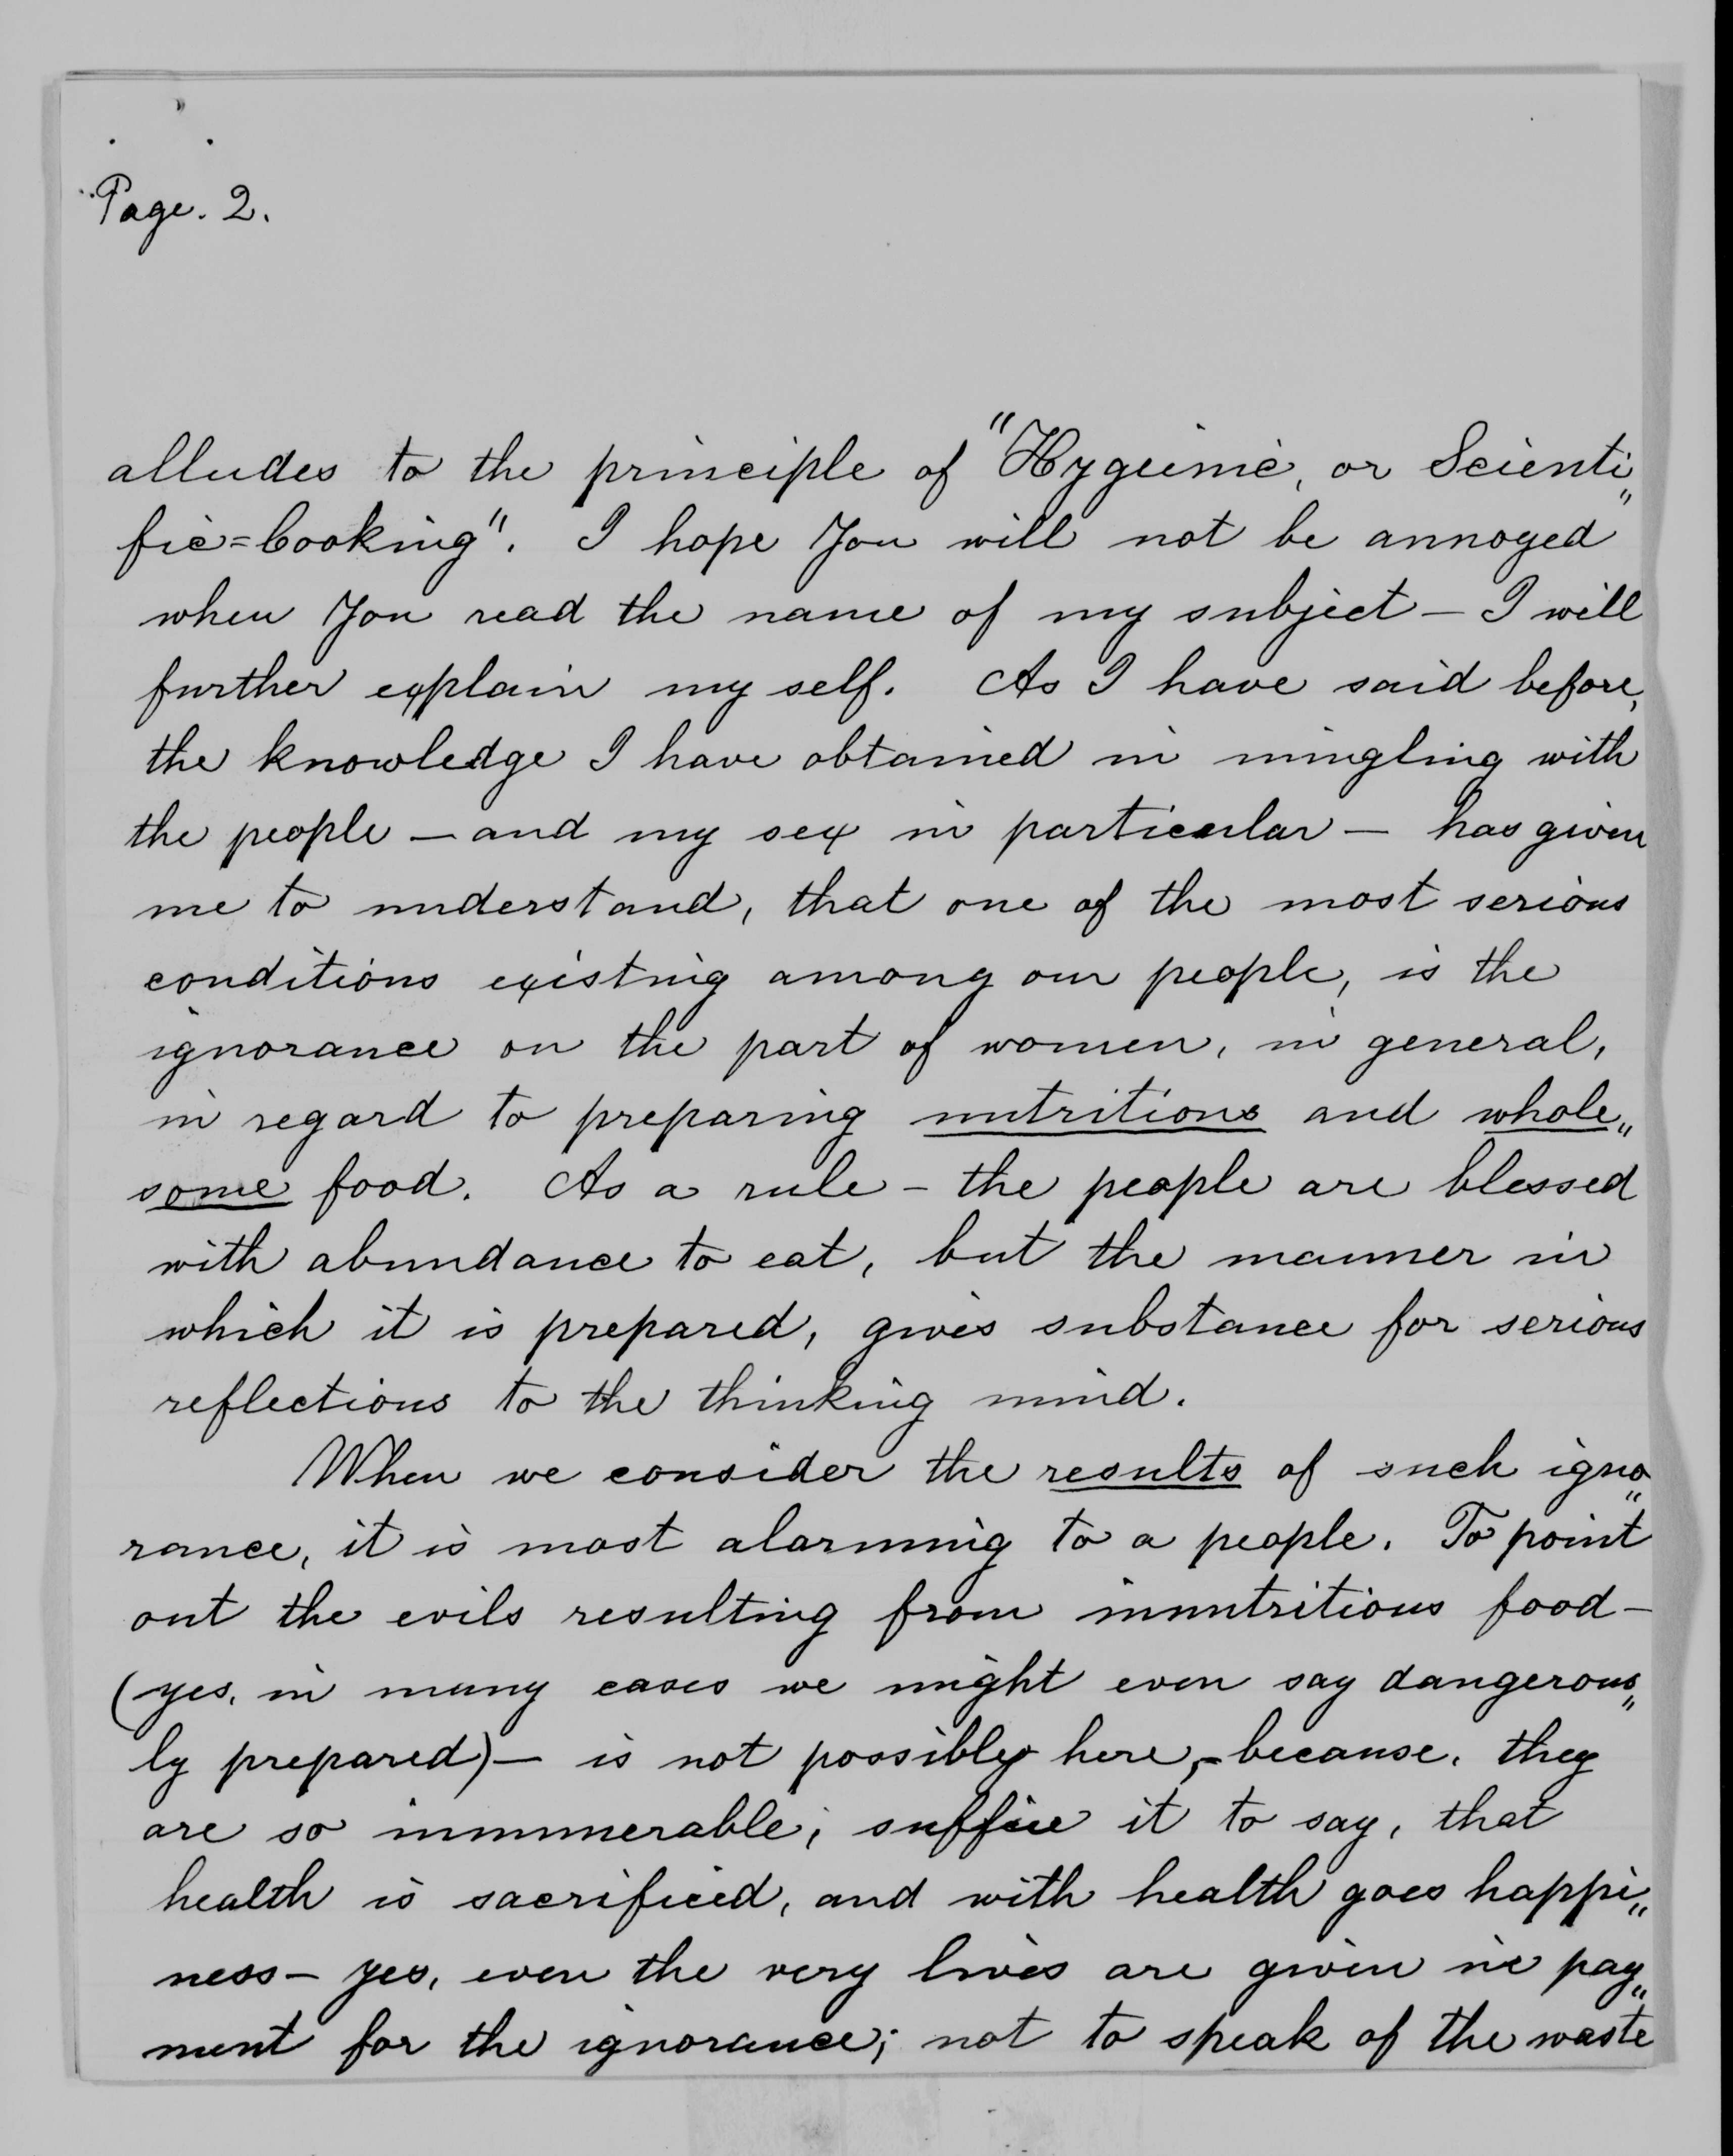 Page. 2.
alludes to the principle of "Hygeinic, or Scienti„
fic=Cooking". I hope You will not be annoyed
when You read the name of my subject — I will
further explain my self. As I have said before,
the knowledge I have obtained in mingling with
the people — and my sex in particular — has given
me to understand, that one of the most serious
conditions existing among our people, is the
ignorance on the part of women, in general,
in regard to preparing nutritious and whole„
some food. As a rule - the people are blessed
with abundance to eat, but the manner in
which it is prepared, gives substance for serious
reflections to the thinking mind.
When we consider the results of such igno„
rance, it is most alarming to a people. To point
out the evils resulting from innutritious food —
(yes, in many cases we might even say dangerous„
ly prepared) — is not possibly here, - because, they
are so innumerable; suffice it to say, that
health is sacrificed, and with health goes happi„
ness — yes, even the very lives are given in pay„
ment for the ignorance; not to speak of the waste